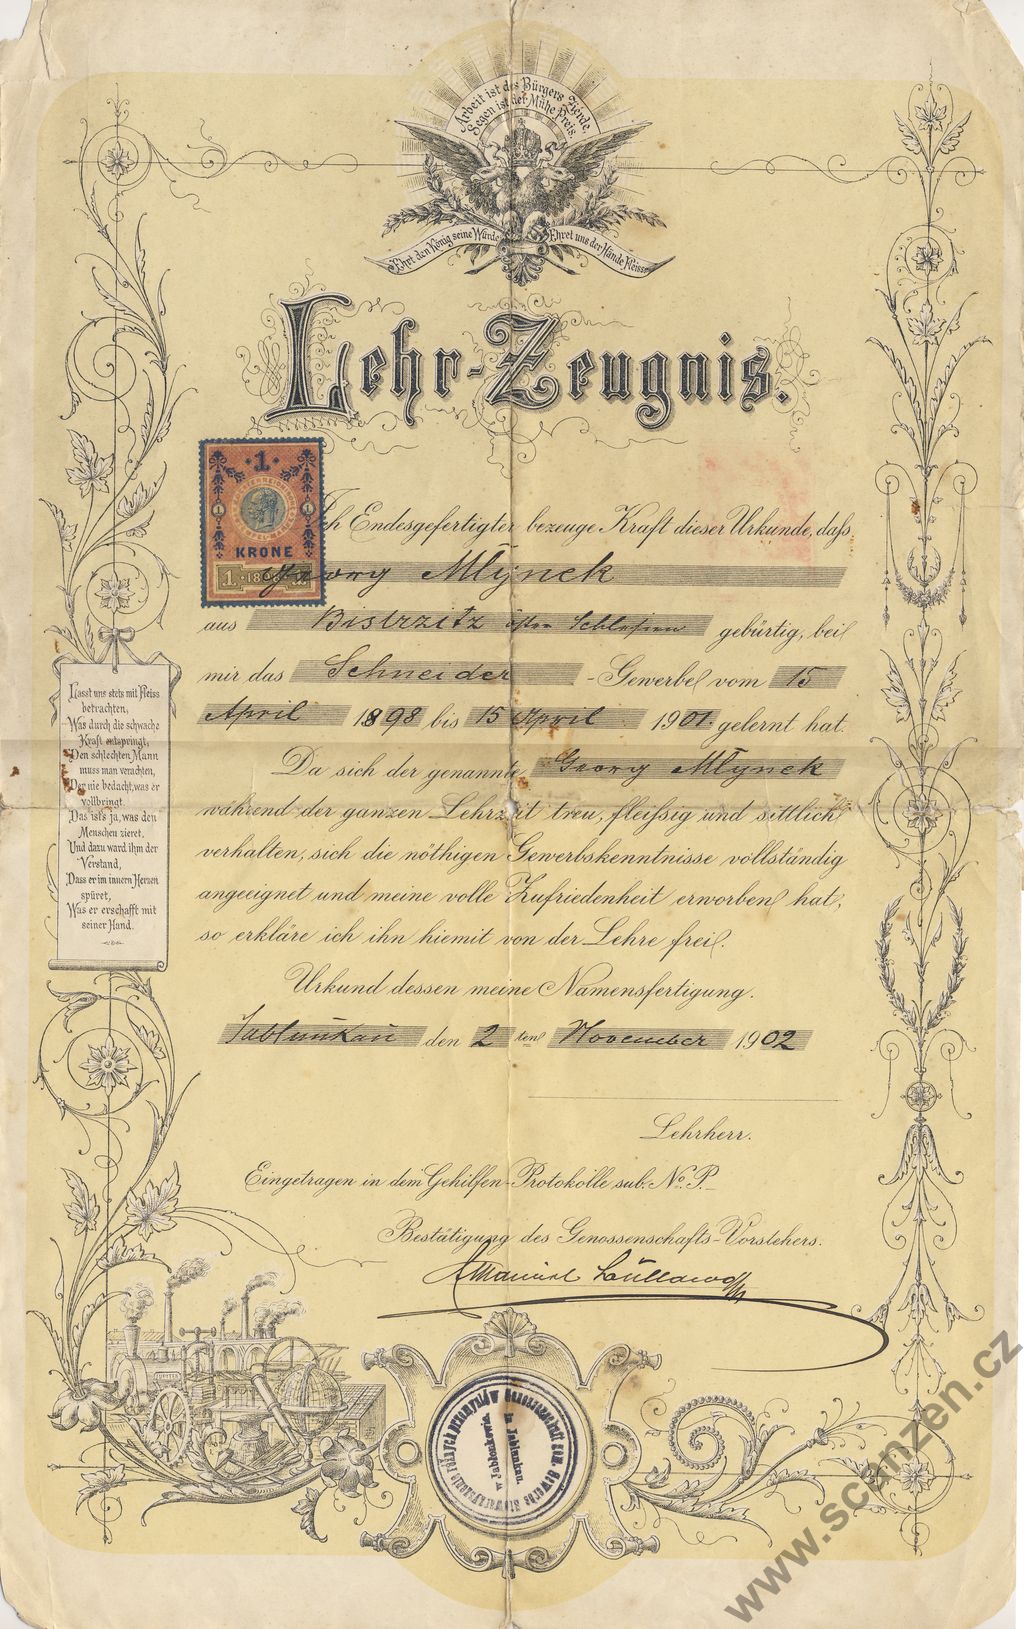 Arbeit ist des Bürgers Zierde,
Segen ist der Mühe Preis,
Ehrt den König seine Würde
Ehret uns der Hände Fleiss
Lehr-Zeugnis.
1
1 1
KRONE
1. 1898 1.
Ich Endesgefertigter bezeuge Kraft dieser Urkunde, dafs
Georg Mlýnek
aus Bistrzitz östr. Schlesien gebürtig, bei
mir das Schneider -Gewerbe vom 15
April 1898 bis 15 April 1901 gelernt hat.
Da sich der genannte Georg Mlýnek
während der ganzen Lehrzeit treu, fleifsig und sittlich
verhalten, sich die nöthigen Gewerbskenntnisse vollständig
angeeignet und meine volle Zufriedenheit erworben hat,
so erkläre ich ihn hiemit von der Lehre frei.
Urkund dessen meine Namensfertigung.
Jablunkau den 2ten November 1902
Lehrherr.
Eingetragen in dem Gehilfen-Protokolle sub. No. P.
Bestätigung des Genossenschafts-Vorstehers.
Lasst uns stets mit Fleiss
betrachten,
Was durch die schwache
Kraft entspringt,
Den schlechten Mann
muss man verachten,
Der nie bedacht, was er
vollbringt.
Das ist's ja, was den
Menschen zieret,
Und dazu ward ihm der
Verstand,
Dass er im innern Herzen
spüret,
Was er erschafft mit
seiner Hand.
Genossenschaft
in Jablunkau.
w Jabłonkowie
www.scanzen.cz